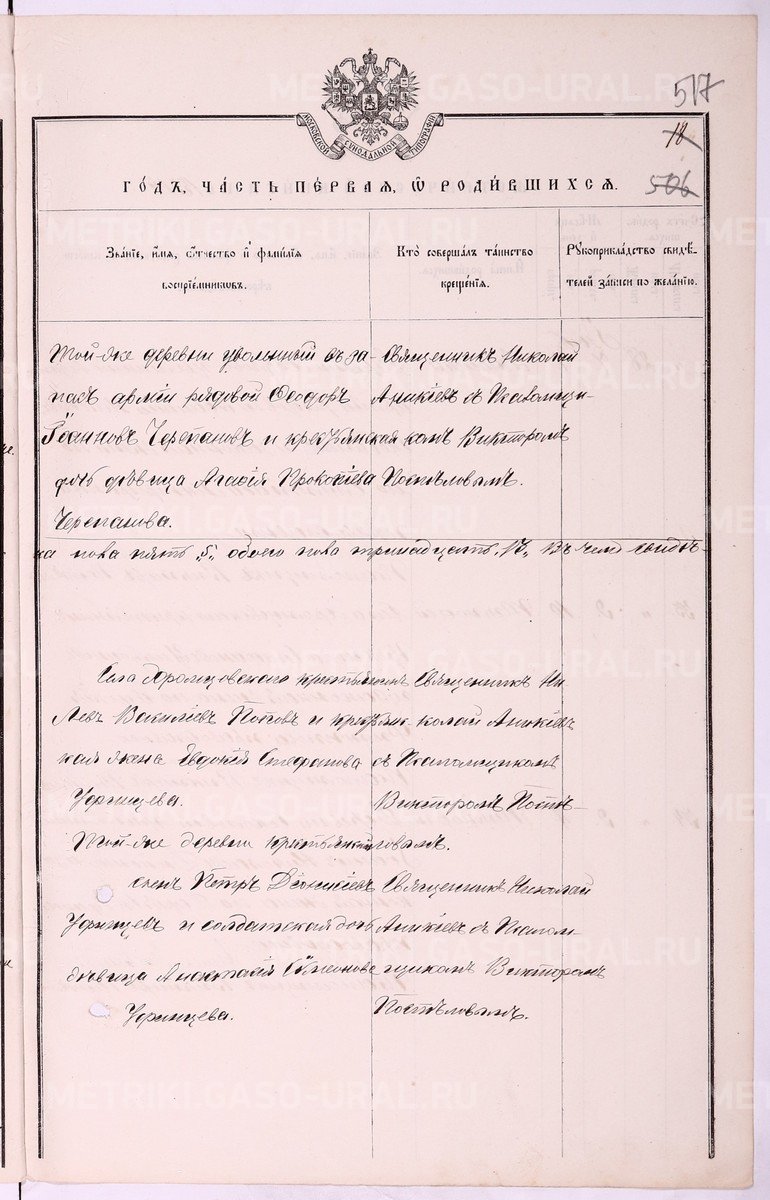 517
18
506
МОСКОВСКОЙ СѴНОДАЛЬНОЙ ТИПОГРАФІИ
ГОДЪ, ЧАСТЬ ПЕРВАЯ, Ѿ РОДИВШИХСЯ.
Званіе, имя, отчество и фамилія воспріемниковъ.
Кто совершалъ таинство крещенія.
Рукоприкладство свидѣтелей записи по желанію.
Той-же деревни уволенный въ за-
пасъ арміи рядовой Ѳеодоръ
Іоанновъ Черепановъ и крестьянская
дѣвица Агаѳія Прокопіева
Черепанова.
Священникъ Николай
Аникіевъ съ Псаломщи-
комъ Викторомъ
Поспѣловымъ.
на пола пять „5„ обоего пола тринадцать „13„ Въ чемъ свидѣ-
Села крестьянинъ
Левъ Василіевъ Поповъ и крестьянс-
кая жена Евдокія Стефанова
Уфинцева.
Священникъ Ни-
колай Аникіевъ
съ Псаломщикомъ
Викторомъ Поспѣ-
ловымъ.
Той-же деревни крестьянскій
сынъ Петръ Діонисіевъ
Уфинцевъ и солдатская дочь
дѣвица Анастасія Симеонова
Уфинцева.
Священникъ Николай
Аникіевъ съ Псалом-
щикомъ Викторомъ
Поспѣловымъ.
METRIKI.GASO-URAL.RU